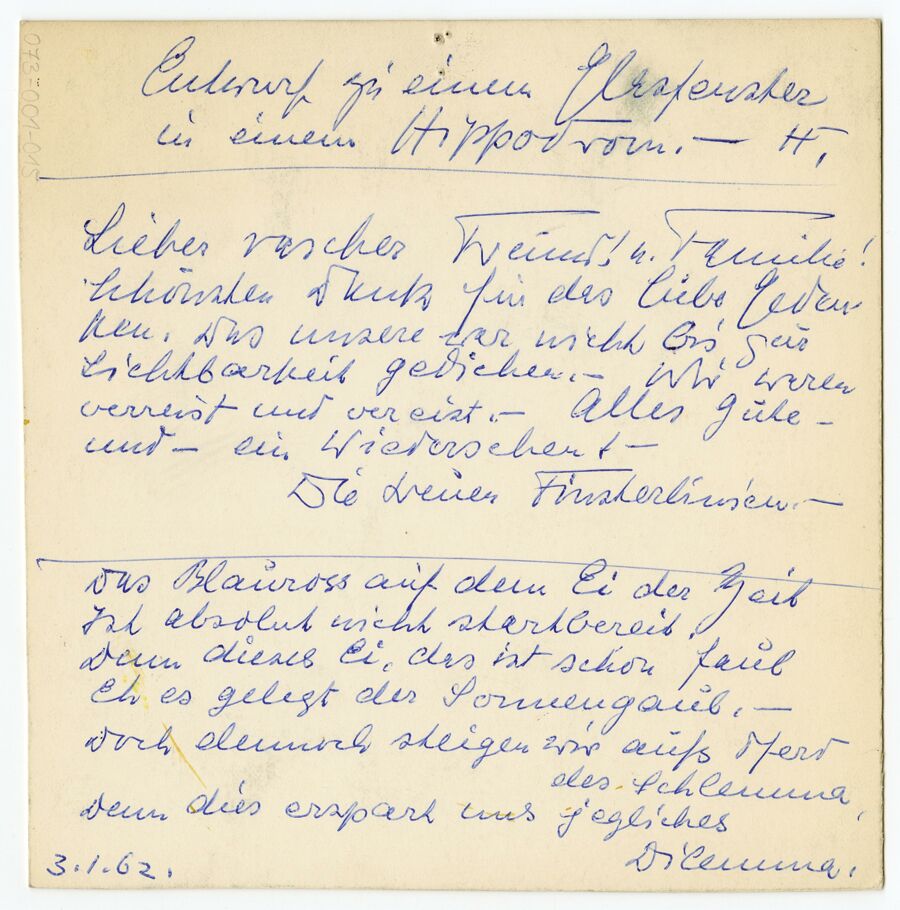 073-001-015
Entwurf zu einem Glasfenster
in einem Hippodrom. — H.
Lieber rascher Freund! u. Familie!
Schönsten Dank für das liebe Geden
ken. Das unsere war nicht bis zur
Sichtbarkeit gediehen. — Wir waren
verreist und vereist. — Alles Gute —
und — ein Wiedersehen! —
Die treuen Finsterlinsen. —
Das Blauross auf dem Ei der Zeit
Ist absolut nicht startbereit.
Denn dieses Ei, das ist schon faul
Eh es gelegt der Sonnengaul. —
Doch dennoch steigen wir aufs Pferd
des Schlemma,
Denn dies erspart uns jegliches
Dilemma.
3.1.62.